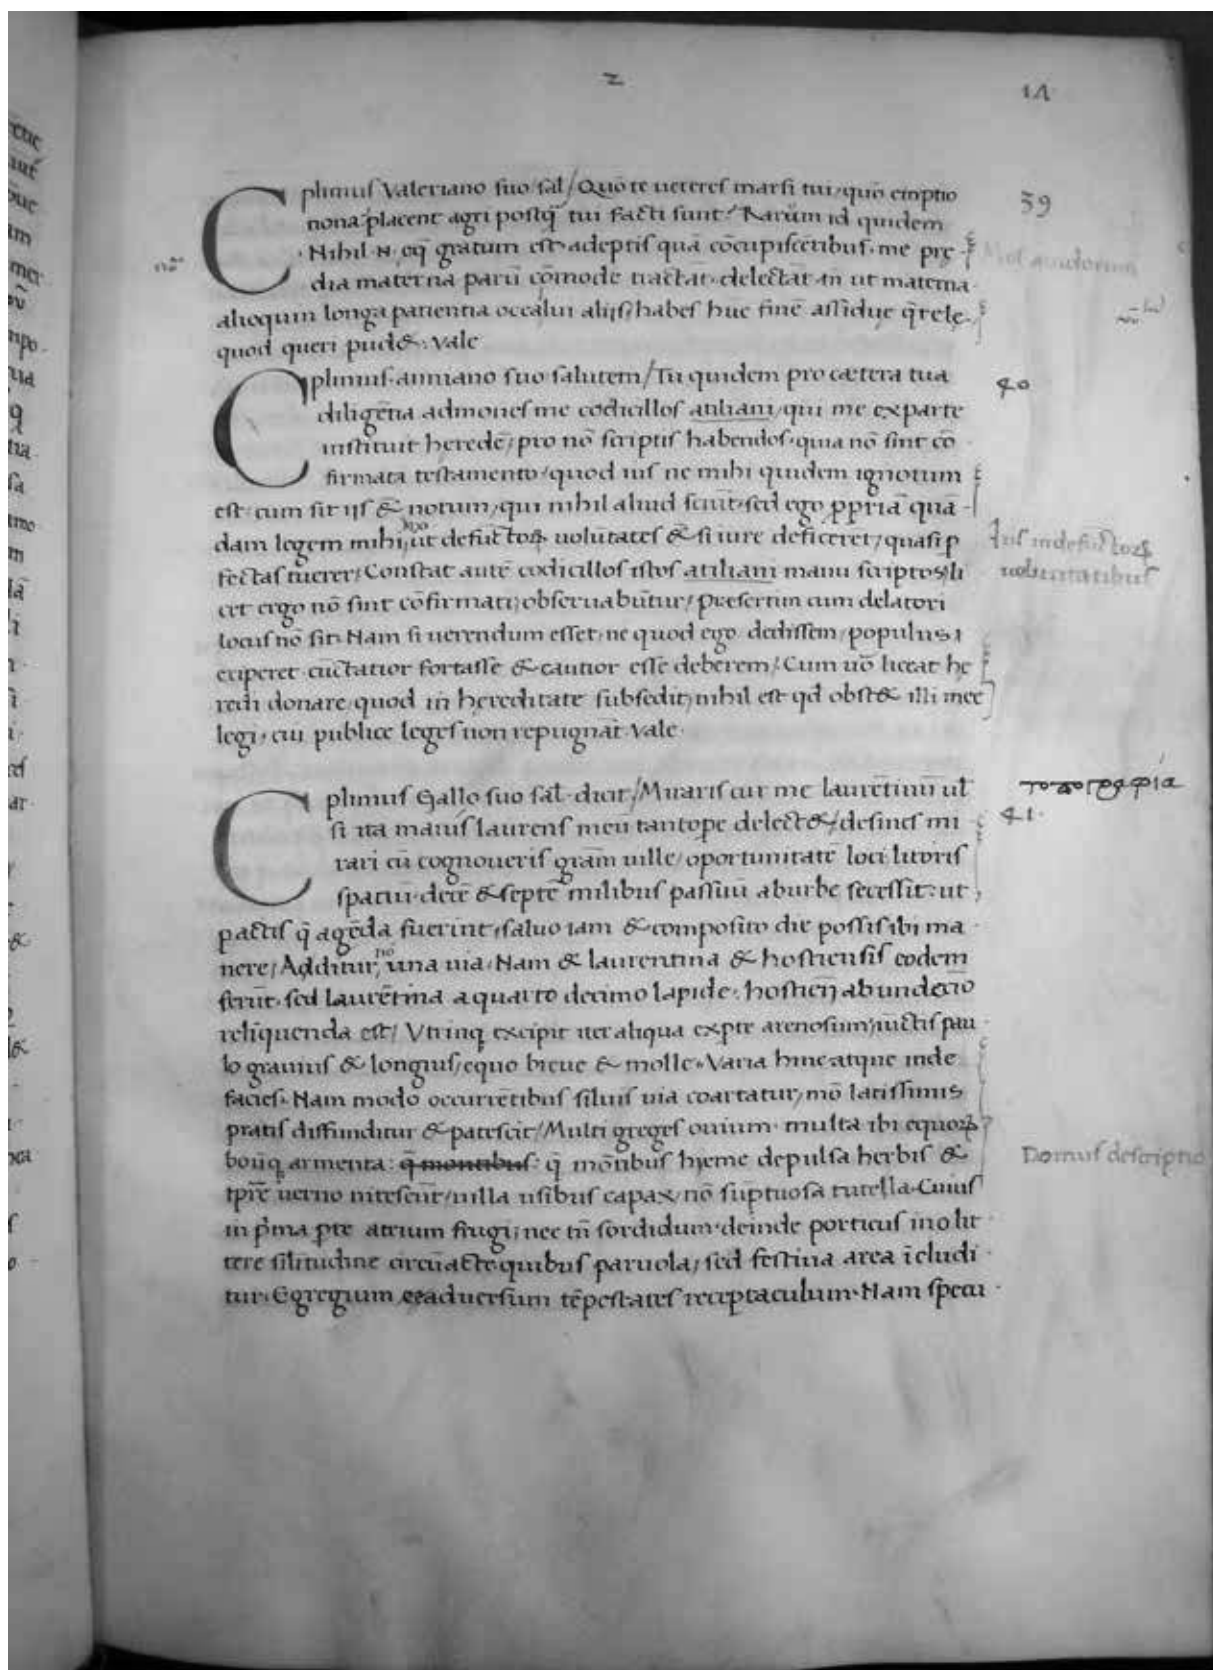 2
14
C plinius Valeriano suo sal̄/ Quō te ueteres marsi tui, quō emptio
39
noua placent agri postq̄ tui facti sunt? Rarum id quidem
Nihil .N. eq̄ gratum est adeptis quā cōcupiscētibus. me prę
dia materna parū cōmode tractāt. delectāt tn̄ ut materna
alioquin longa patientia occalui alijs. habes huc finē assidue q̄rele.
quod queri pud&. Vale
C plinius. anniano suo salutem/ Tu quidem pro cætera tua
40
diligētia admones me codicillos atiliani, qui me exparte
instituit heredē, pro nō scriptis habendos. quia nō sint cō
firmata testamento, quod ius ne mihi quidem ignotum
est. cum sit ijs & notum, qui nihil aliud sciūt. sed ego ppriā quā
dam legem mihi ut defūctoꝝ uolūtates & si iure deficeret, quasi p
Ius in defūctoꝝ
uoluntatibus
fectas tuerer/ Constat autē codicillos istos atiliani manu scriptos, li
cet ergo nō sint cōfirmati, obseruabūtur/ Presertim cum delatori
locus nō sit. Nam si uerendum esset, ne quod ego dedissem, populus
eriperet. cūctatior fortasse & cautior esse deberem/ Cum uō liceat he
redi donare, quod in hereditate subsedit, nihil est qd obst& illi meę
legi, cui publicę leges non repugnāt. Vale.
τοπογραφία
C plinius Gallo suo sal̄. dicit/ Miraris cur me laurētinū ul̄
41.
si ita mauis laurens meū tantope delect&/ desines mi
rari cū cognoueris gr̄am uille, oportunitatē loci litoris
spatiū. decē & septē milibus passuū ab urbe secessit: ut
pactis q̄ agēda fuerint, saluo iam & composito die possis ibi ma
nere/ Aditur nō una uia. Nam & laurentina & hostiensis eodem
ferūt. sed laurētina a quarto decimo lapide. hostien̄ ab undecīo
relīquenda est/ Vtrinq excipit iter aliqua expte arenosum, iūctis pau
lo grauius & longius, equo breue & molle. Varia hinc atque inde
facies. Nam modo occurrētibus siluis uia coartatur, mō latissimis
pratis diffunditur & patescit/ Multi greges ouium. multa ibi equoꝝ
boūq armenta: q̄ montibus: q̄ mōtibus hyeme depulsa herbis &
Domus descriptio
tpr̄e uerno nitescūt, uilla usibus capax, nō sūptuosa tutella. Cuius
in p̄ma pte atrium frugi, nec tn̄ sordidum. deinde porticus in o lit
tere sil̄itudinē circūactę quibus paruola, sed festiua area īcludi
tur. Egregium ee aduersum tēpestates receptaculum. Nam specu